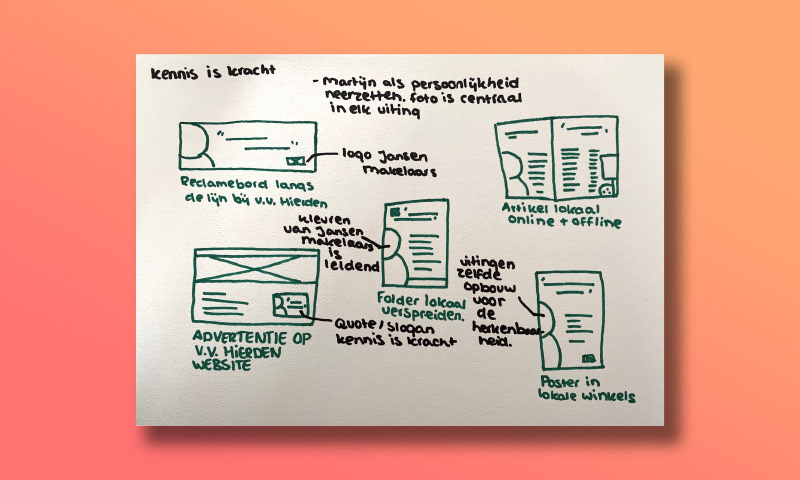 kennis is kracht
- martijn als persoonlijkheid
neerzetten. foto is centraal
in elk uiting
logo Jansen
makelaars
Reclamebord langs
de lijn bij v.v. Hierden
Artikel lokaal
online + offline
kleuren
van Jansen
makelaars
is
leidend
Folder lokaal
verspreiden.
uitingen
zelfde
opbouw
voor
de
herkenbaar
heid.
Quote/slogan
kennis is kracht
ADVERTENTIE OP
V.V. HIERDEN
WEBSITE
Poster in
lokale winkels